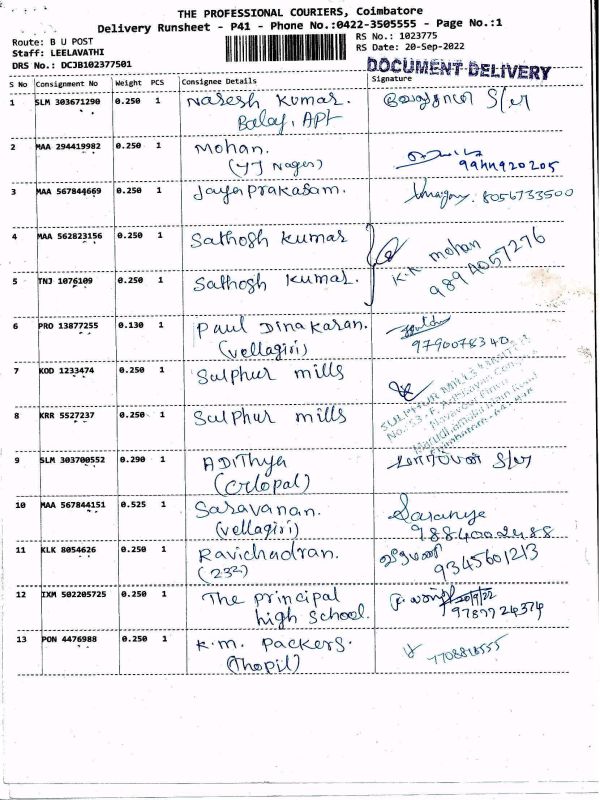 THE PROFESSIONAL COURIERS, Coimbatore
Delivery Runsheet - P41 - Phone No.:0422-3505555 - Page No.:1
Route: B U POST
RS No.: 1023775
Staff: LEELAVATHI
RS Date: 20-Sep-2022
DRS No.: DCJB102377501
DOCUMENT DELIVERY
S No Consignment No Weight PCS Consignee Details Signature
1 SLM 303671290 0.250 1 Naresh Kumar.
Balaji, Apt
2 MAA 294419982 0.250 1 Mohan.
(YJ Nager)
9944920205
3 MAA 567844669 0.250 1 Jayaprakasam. 8056733500
4 MAA 562823156 0.250 1 Sathosh Kumar
K.K mohan
9894057276
5 TNJ 1076109 0.250 1 Sathosh Kumar.
6 PRO 13877255 0.130 1 Paul Dinakaran.
(vellagiri)
9790078340
7 KOD 1233474 0.250 1 Sulphur mills
SULPHUR MILLS LIMITED
8 KRR 5527237 0.250 1 Sulphur mills
9 SLM 303700552 0.290 1 ADITHYA
10 MAA 567844151 0.525 1 Saravanan. Saranya
(vellagiri) 9884002488
11 KLK 8054626 0.250 1 Ravichadran.
(232) 9345601213
12 IXM 502205725 0.250 1 The principal
high school.
20/9/22
9787724374
13 PON 4476988 0.250 1 K.M. Packers.
(Thopil)